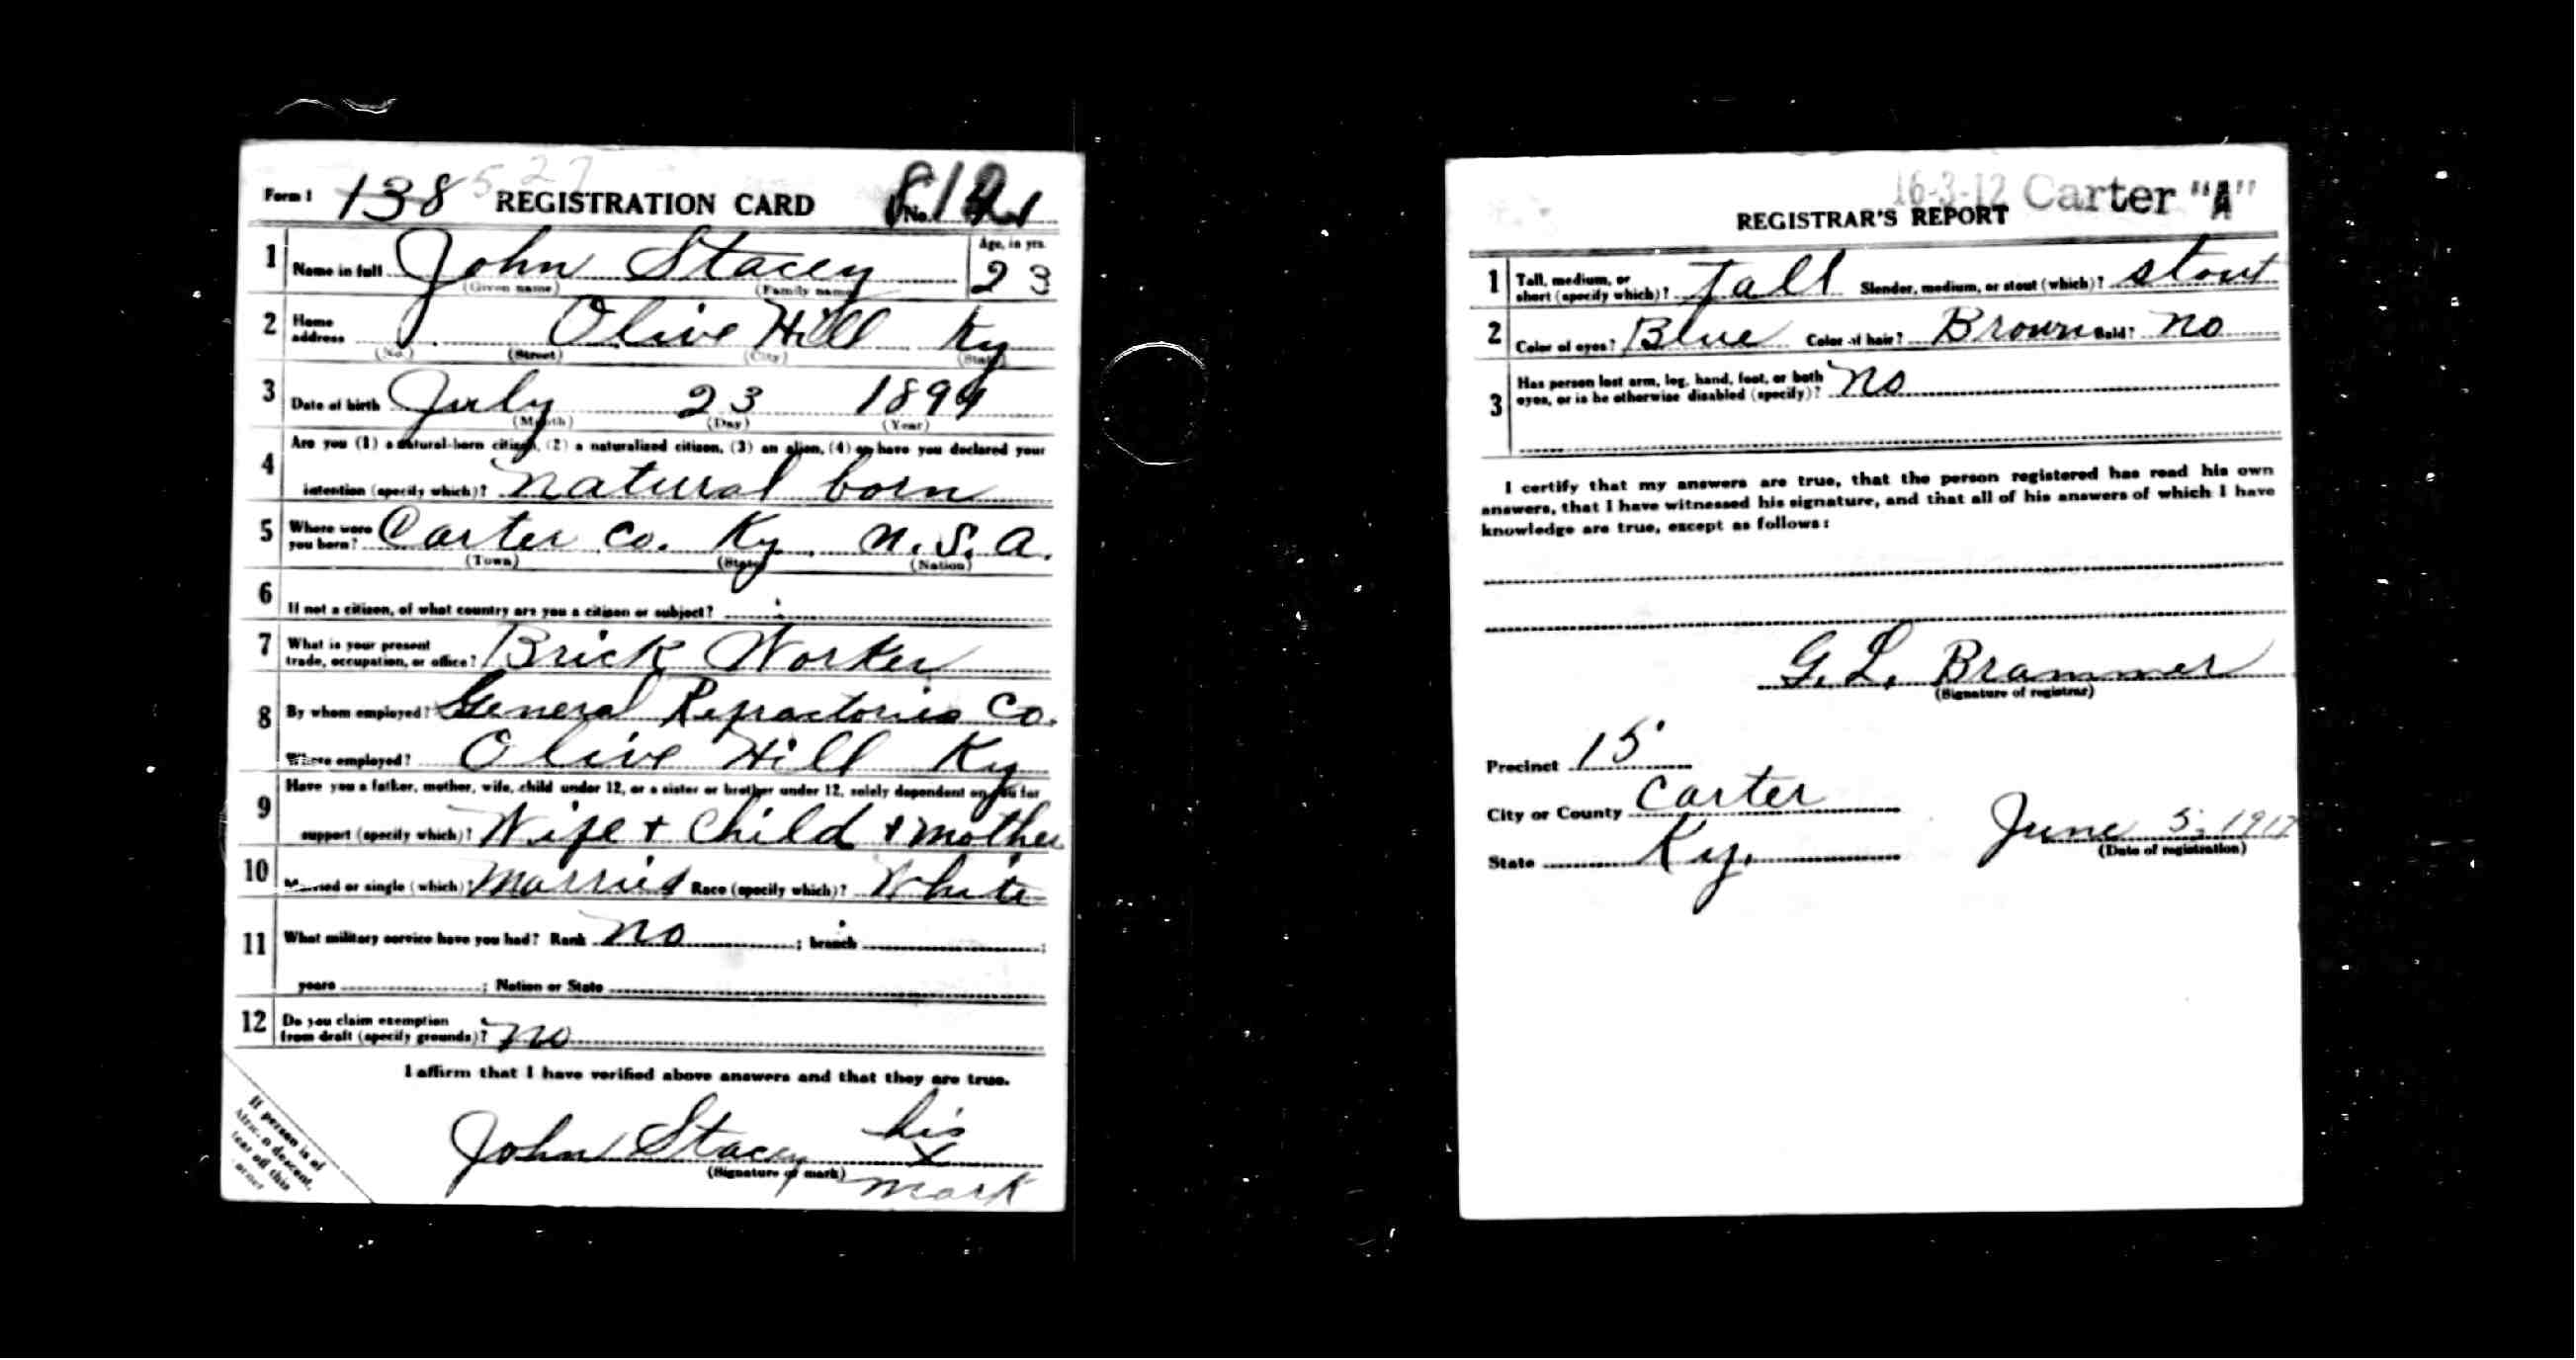 Form 1 138 527 REGISTRATION CARD No.
1 Name in full John Stacey Age, in yrs. 23
(Given name) (Family name)
2 Home address Olive Hill Ky
(No.) (Street) (City) (State)
3 Date of birth July 23 1894
(Month) (Day) (Year)
4 Are you (1) a natural-born citizen, (2) a naturalized citizen, (3) an alien, (4) or have you declared your
intention (specify which)? natural born
5 Where were you born? Carter Co. Ky. U.S.A.
(Town) (State) (Nation)
6 If not a citizen, of what country are you a citizen or subject?
7 What is your present trade, occupation, or office? Brick Worker
8 By whom employed? General Refractories Co.
Where employed? Olive Hill Ky
9 Have you a father, mother, wife, child under 12, or a sister or brother under 12, solely dependent on you for
support (specify which)? Wife + Child + mother
10 Married or single (which)? Married Race (specify which)? White
11 What military service have you had? Rank no ; branch ;
years ; Nation or State
12 Do you claim exemption from draft (specify grounds)? no
I affirm that I have verified above answers and that they are true.
John Stacey his X mark
(Signature or mark)
If person is of
African descent,
tear off this
corner
16-3-12 Carter "A"
REGISTRAR'S REPORT
1 Tall, medium, or short (specify which)? Tall Slender, medium, or stout (which)? stout
2 Color of eyes? Blue Color of hair? Brown Bald? no
3 Has person lost arm, leg, hand, foot, or both eyes, or is he otherwise disabled (specify)? no
I certify that my answers are true, that the person registered has read his own
answers, that I have witnessed his signature, and that all of his answers of which I have
knowledge are true, except as follows:
G. L. Brammer
(Signature of registrar)
Precinct 15
City or County Carter
State Ky.
June 5, 1917
(Date of registration)